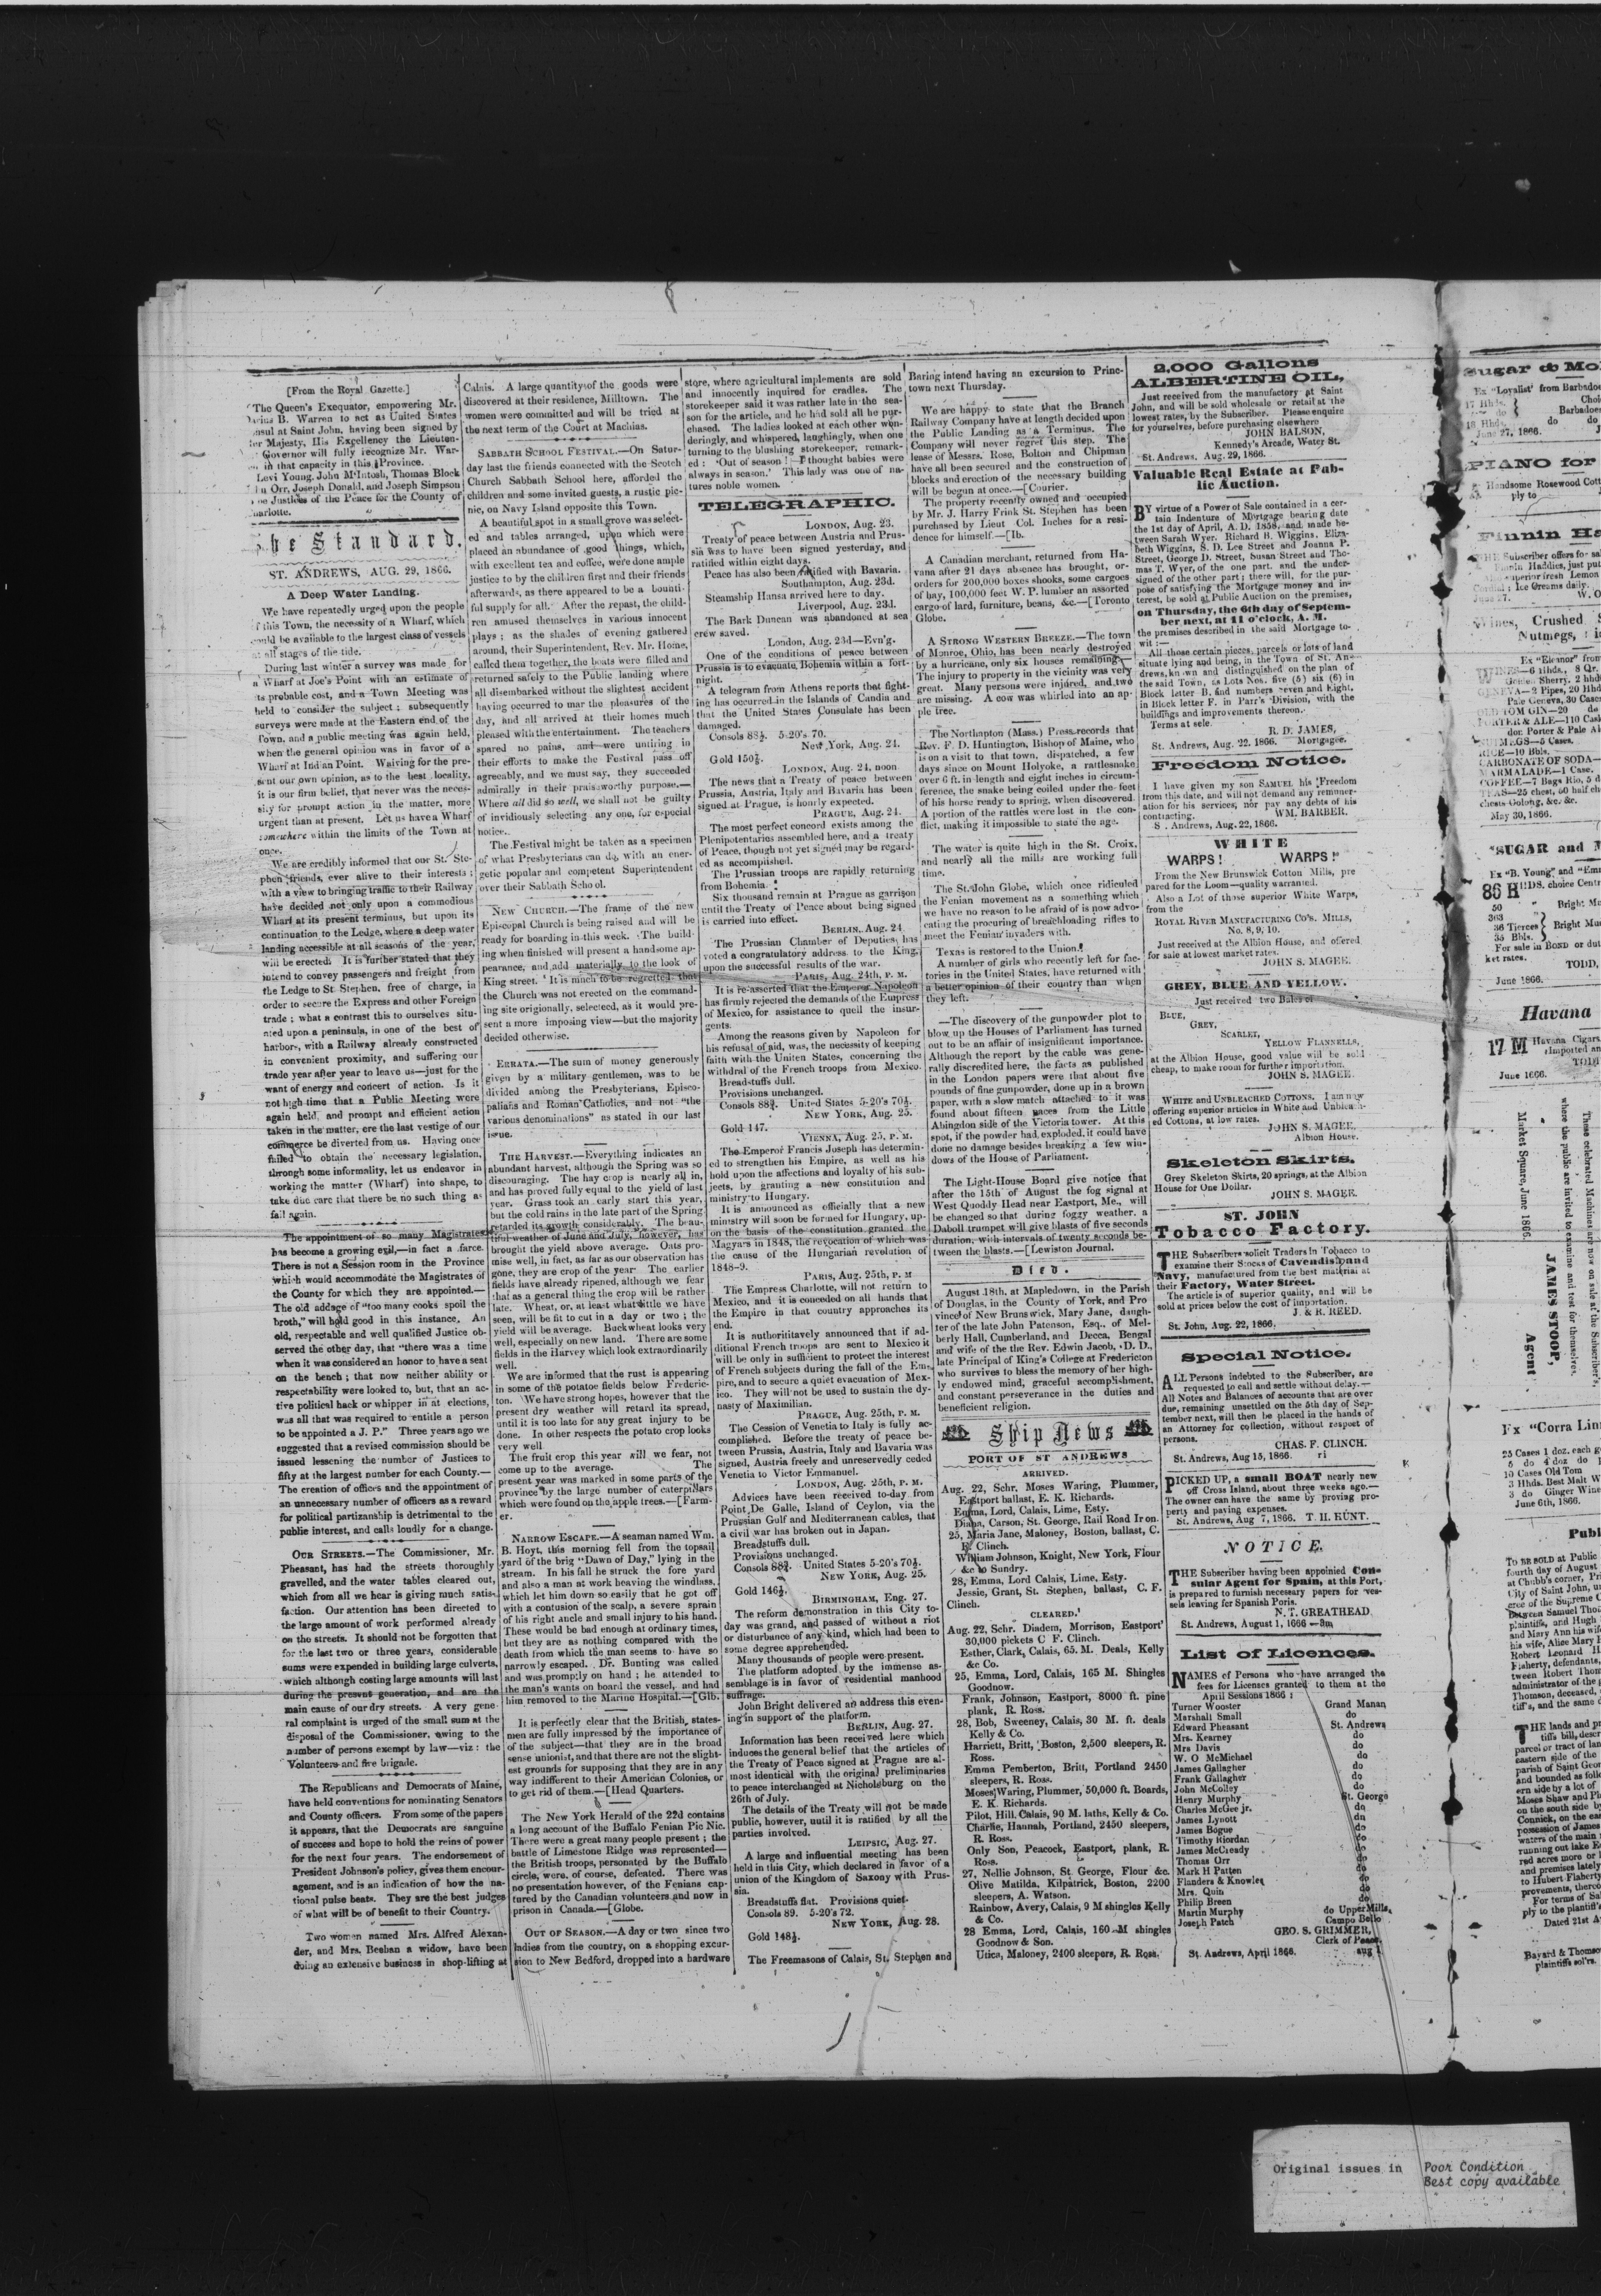 [From the Royal Gazette.]
The Queen's Exequator, empowering Mr.
B. Warren to act as United States
at Saint John, having been signed by
Majesty, His Excellency the Lieuten-
Governor will fully recognize Mr. War-
in that capacity in this Province.
Levi Young, John M'Intosh, Thomas Block
Orr, Joseph Donald, and Joseph Simpson
Justices of the Peace for the County of
The Standard.
ST. ANDREWS, AUG. 29, 1866.
A Deep Water Landing.
We have repeatedly urged upon the people
of this Town, the necessity of a Wharf, which
could be available to the largest class of vessels
at all stages of the tide.
During last winter a survey was made for
a Wharf at Joe's Point with an estimate of
its probable cost, and a Town Meeting was
held to consider the subject; subsequently
surveys were made at the Eastern end of the
Town, and a public meeting was again held,
when the general opinion was in favor of a
Wharf at Indian Point. Waiving for the pre-
sent our own opinion, as to the best locality,
it is our firm belief, that never was the neces-
sity for prompt action in the matter, more
urgent than at present. Let us have a Wharf
somewhere within the limits of the Town at
once.
We are credibly informed that our St. Ste-
phen friends, ever alive to their interests;
with a view to bringing traffic to their Railway
have decided not only upon a commodious
Wharf at its present terminus, but upon its
continuation to the Ledge, where a deep water
landing accessible at all seasons of the year,
will be erected. It is further stated that they
intend to convey passengers and freight from
the Ledge to St. Stephen, free of charge, in
order to secure the Express and other Foreign
trade; what a contrast this to ourselves situ-
ated upon a peninsula, in one of the best of
harbors, with a Railway already constructed
in convenient proximity, and suffering our
trade year after year to leave us—just for the
want of energy and concert of action. Is it
not high time that a Public Meeting were
again held, and prompt and efficient action
taken in the matter, ere the last vestige of our
commerce be diverted from us. Having once
failed to obtain the necessary legislation,
through some informality, let us endeavor in
working the matter (Wharf) into shape, to
take due care that there be no such thing as
fail again.
The appointment of so many Magistrates
has become a growing evil,—in fact a farce.
There is not a Session room in the Province
which would accommodate the Magistrates of
the County for which they are appointed.—
The old addage of "too many cooks spoil the
broth," will hold good in this instance. An
old, respectable and well qualified Justice ob-
served the other day, that "there was a time
when it was considered an honor to have a seat
on the bench; that now neither ability or
respectability were looked to, but, that an ac-
tive political hack or whipper in at elections,
was all that was required to entitle a person
to be appointed a J. P." Three years ago we
suggested that a revised commission should be
issued lessening the number of Justices to
fifty at the largest number for each County.—
The creation of offices and the appointment of
an unnecessary number of officers as a reward
for political partizanship is detrimental to the
public interest, and calls loudly for a change.
OUR STREETS.—The Commissioner, Mr.
Pheasant, has had the streets thoroughly
gravelled, and the water tables cleared out,
which from all we hear is giving much satis-
faction. Our attention has been directed to
the large amount of work performed already
on the streets. It should not be forgotten that
for the last two or three years, considerable
sums were expended in building large culverts,
which although costing large amounts will last
during the present generation, and are the
main cause of our dry streets. A very gene-
ral complaint is urged of the small sum at the
disposal of the Commissioner, owing to the
number of persons exempt by law—viz: the
Volunteers and fire brigade.
The Republicans and Democrats of Maine,
have held conventions for nominating Senators
and County officers. From some of the papers
it appears, that the Democrats are sanguine
of success and hope to hold the reins of power
for the next four years. The endorsement of
President Johnson's policy, gives them encour-
agement, and is an indication of how the na-
tional pulse beats. They are the best judges
of what will be of benefit to their Country.
Two women named Mrs. Alfred Alexan-
der, and Mrs. Beehan a widow, have been
doing an extensive business in shop-lifting at
Calais. A large quantity of the goods were
discovered at their residence, Milltown. The
women were committed and will be tried at
the next term of the Court at Machias.
SABBATH SCHOOL FESTIVAL.—On Satur-
day last the friends connected with the Scotch
Church Sabbath School here, afforded the
children and some invited guests, a rustic pic-
nic, on Navy Island opposite this Town.
A beautiful spot in a small grove was select-
ed and tables arranged, upon which were
placed an abundance of good things, which,
with excellent tea and coffee, were done ample
justice to by the children first and their friends
afterwards, as there appeared to be a bounti-
ful supply for all. After the repast, the child-
ren amused themselves in various innocent
plays; as the shades of evening gathered
around, their Superintendent, Rev. Mr. Home,
called them together, the boats were filled and
returned safely to the Public landing where
all disembarked without the slightest accident
having occurred to mar the pleasures of the
day, and all arrived at their homes much
pleased with the entertainment. The teachers
spared no pains, and were untiring in
their efforts to make the Festival pass off
agreeably, and we must say, they succeeded
admirally in their praiseworthy purpose.—
Where all did so well, we shall not be guilty
of invidiously selecting any one, for especial
notice.
The Festival might be taken as a specimen
of what Presbyterians can do, with an ener-
getic popular and competent Superintendent
over their Sabbath School.
NEW CHURCH.—The frame of the new
Episcopal Church is being raised and will be
ready for boarding in this week. The build-
ing when finished will present a handsome ap-
pearance, and add materially to the look of
King street. It is much to be regretted that
the Church was not erected on the command-
ing site originally, selected, as it would pre-
sent a more imposing view—but the majority
decided otherwise.
ERRATA.—The sum of money generously
given by a military gentlemen, was to be
divided among the Presbyterians, Episco-
palians and Roman Catholics, and not "the
various denominations" as stated in our last
issue.
THE HARVEST.—Everything indicates an
abundant harvest, although the Spring was so
discouraging. The hay crop is nearly all in,
and has proved fully equal to the yield of last
year. Grass took an early start this year,
but the cold rains in the late part of the Spring
retarded its growth considerably. The beau-
tiful weather of June and July, however, has
brought the yield above average. Oats pro-
mise well, in fact, as far as our observation has
gone, they are crop of the year. The earlier
fields have already ripened, although we fear
that as a general thing the crop will be rather
late. Wheat, or, at least what little we have
seen, will be fit to cut in a day or two; the
yield will be average. Buckwheat looks very
well, especially on new land. There are some
fields in the Harvey which look extraordinarily
well.
We are informed that the rust is appearing
in some of the potatoe fields below Frederic-
ton. We have strong hopes, however that the
present dry weather will retard its spread,
until it is too late for any great injury to be
done. In other respects the potato crop looks
very well
The fruit crop this year will we fear, not
come up to the average. The
present year was marked in some parts of the
province by the large number of caterpillars
which were found on the apple trees.—[Farm-
er.
NARROW ESCAPE.—A seaman named Wm.
B. Hoyt, this morning fell from the topsail
yard of the brig "Dawn of Day," lying in the
stream. In his fall he struck the fore yard
and also a man at work heaving the windlass,
which let him down so easily that he got off
with a contusion of the scalp, a severe sprain
of his right ancle and small injury to his hand.
These would be bad enough at ordinary times,
but they are as nothing compared with the
death from which the man seems to have so
narrowly escaped. Dr. Bunting was called
and was promptly on hand; he attended to
the man's wants on board the vessel, and had
him removed to the Marine Hospital.—[Glb.
It is perfectly clear that the British, states-
men are fully impressed by the importance of
of the subject—that they are in the broad
sense unionist, and that there are not the slight-
est grounds for supposing that they are in any
way indifferent to their American Colonies, or
to get rid of them.—[Head Quarters.
The New York Herald of the 22d contains
a long account of the Buffalo Fenian Pic Nic.
There were a great many people present; the
battle of Limestone Ridge was represented—
the British troops, personated by the Buffalo
circle, were, of course, defeated. There was
no presentation however, of the Fenians cap-
tured by the Canadian volunteers and now in
prison in Canada.—[Globe.
OUT OF SEASON.—A day or two since two
ladies from the country, on a shopping excur-
sion to New Bedford, dropped into a hardware
store, where agricultural implements are sold
and innocently inquired for cradles. The
storekeeper said it was rather late in the sea-
son for the article, and he had sold all he pur-
chased. The ladies looked at each other won-
deringly, and whispered, laughingly, when one
turning to the blushing storekeeper, remark-
ed: 'Out of season!—I thought babies were
always in season.' This lady was one of na-
tures noble women.
TELEGRAPHIC.
LONDON, Aug. 23.
Treaty of peace between Austria and Prus-
sia was to have been signed yesterday, and
ratified within eight days.
Peace has also been ratified with Bavaria.
Southampton, Aug. 23d.
Steamship Hansa arrived here to day.
Liverpool, Aug. 23d.
The Bark Duncan was abandoned at sea
crew saved.
London, Aug. 23d—Evn'g.
One of the conditions of peace between
Prussia is to evacuate Bohemia within a fort-
night.
A telegram from Athens reports that fight-
ing has occurred in the Islands of Candia and
that the United States Consulate has been
damaged.
Consols 88½. 5-20's 70.
New York, Aug. 24.
Gold 150¾.
LONDON, Aug. 24, noon
The news that a Treaty of peace between
Prussia, Austria, Italy and Bavaria has been
signed at Prague, is hourly expected.
PRAGUE, Aug. 24.
The most perfect concord exists among the
Plenipotentaries assembled here, and a treaty
of Peace, though not yet signed may be regard-
ed as accomplished.
The Prussian troops are rapidly returning
from Bohemia.
Six thousand remain at Prague as garrison
until the Treaty of Peace about being signed
is carried into effect.
BERLIN, Aug. 24
The Prussian Chamber of Deputies has
voted a congratulatory address to the King,
upon the successful results of the war.
PARIS, Aug. 24th, P. M.
It is re-asserted that the Emperor Napoleon
has firmly rejected the demands of the Empress
of Mexico, for assistance to quell the insur-
gents.
Among the reasons given by Napoleon for
his refusal of aid, was, the necessity of keeping
faith with the Uniten States, concerning the
withdral of the French troops from Mexico.
Breadstuffs dull.
Provisions unchanged.
Consols 88¾. United States 5-20's 70½.
NEW YORK, Aug. 25.
Gold 147.
VIENNA, Aug. 25, P. M.
The Emperor Francis Joseph has determin-
ed to strengthen his Empire, as well as his
hold upon the affections and loyalty of his sub-
jects, by granting a new constitution and
ministry to Hungary.
It is announced as officially that a new
ministry will soon be formed for Hungary, up-
on the basis of the constitution granted the
Magyars in 1848, the revocation of which was
the cause of the Hungarian revolution of
1848-9.
PARIS, Aug. 25th, P. M
The Empress Charlotte, will not return to
Mexico, and it is conceded on all hands that
the Empire in that country approaches its
end.
It is authorititavely announced that if ad-
ditional French troops are sent to Mexico it
will be only in sufficient to protect the interest
of French subjects during the fall of the Em-
pire, and to secure a quiet evacuation of Mex-
ico. They will not be used to sustain the dy-
nasty of Maximilian.
PRAGUE, Aug. 25th, P. M.
The Cession of Venetia to Italy is fully ac-
complished. Before the treaty of peace be-
tween Prussia, Austria, Italy and Bavaria was
signed, Austria freely and unreservedly ceded
Venetia to Victor Emmanuel.
LONDON, Aug. 25th, P. M.
Advices have been received to-day from
Point De Galle, Island of Ceylon, via the
Prussian Gulf and Mediterranean cables, that
a civil war has broken out in Japan.
Breadstuffs dull.
Provisions unchanged.
Consols 88¾. United States 5-20's 70½.
NEW YORK, Aug. 25.
Gold 146½.
BIRMINGHAM, Eng. 27.
The reform demonstration in this City to-
day was grand, and passed of without a riot
or disturbance of any kind, which had been to
some degree apprehended.
Many thousands of people were present.
The platform adopted by the immense as-
semblage is in favor of residential manhood
suffrage.
John Bright delivered an address this even-
ing in support of the platform.
BERLIN, Aug. 27.
Information has been received here which
induces the general belief that the articles of
the Treaty of Peace signed at Prague are al-
most identical with the original preliminaries
to peace interchanged at Nicholsburg on the
26th of July.
The details of the Treaty will not be made
public, however, until it is ratified by all the
parties involved.
LEIPSIC, Aug. 27.
A large and influential meeting has been
held in this City, which declared in favor of a
union of the Kingdom of Saxony with Prus-
sia.
Breadstuffs flat. Provisions quiet.
Consols 89. 5-20's 72.
NEW YORK, Aug. 28.
Gold 148½.
The Freemasons of Calais, St. Stephen and
Baring intend having an excursion to Princ-
town next Thursday.
We are happy to state that the Branch
Railway Company have at length decided upon
the Public Landing as a Terminus. The
Company will never regret this step. The
lease of Messrs. Rose, Bolton and Chipman
have all been secured and the construction of
blocks and erection of the necessary building
will be begun at once.—[Courier.
The property recently owned and occupied
by Mr. J. Harry Frink St. Stephen has been
purchased by Lieut Col. Inches for a resi-
dence for himself.—[Ib.
A Canadian merchant, returned from Ha-
vana after 21 days absence has brought, or-
orders for 200,000 boxes shooks, some cargoes
of hay, 100,000 feet W. P. lumber an assorted
cargo of lard, furniture, beans, &c.—[Toronto
Globe.
A STRONG WESTERN BREEZE.—The town
of Monroe, Ohio, has been nearly destroyed
by a hurricane, only six houses remaining.—
The injury to property in the vicinity was very
great. Many persons were injured, and two
are missing. A cow was whirled into an ap-
ple tree.
The Northapton (Mass.) Press records that
Rev. F. D. Huntington, Bishop of Maine, who
is on a visit to that town, dispatched, a few
days since on Mount Holyoke, a rattlesnake
over 6 ft. in length and eight inches in circum-
ference, the snake being coiled under the feet
of his horse ready to spring, when discovered.
A portion of the rattles were lost in the con-
flict, making it impossible to state the age.
The water is quite high in the St. Croix,
and nearly all the mills are working full
time.
The St. John Globe, which once ridiculed
the Fenian movement as a something which
we have no reason to be afraid of is now advo-
cating the procuring of breechloading rifles to
meet the Fenian invaders with.
Texas is restored to the Union!
A number of girls who recently left for fac-
tories in the United States, have returned with
a better opinion of their country than when
they left.
—The discovery of the gunpowder plot to
blow up the Houses of Parliament has turned
out to be an affair of insignificant importance.
Although the report by the cable was gene-
rally discredited here, the facts as published
in the London papers were that about five
pounds of fine gunpowder, done up in a brown
paper, with a slow match attached to it was
found about fifteen paces from the Little
Abingdon side of the Victoria tower. At this
spot, if the powder had exploded, it could have
done no damage besides breaking a few win-
dows of the House of Parliament.
The Light-House Board give notice that
after the 15th of August the fog signal at
West Quoddy Head near Eastport, Me., will
be changed so that during foggy weather, a
Daboll trumpet will give blasts of five seconds
duration, with intervals of twenty seconds be-
tween the blasts.—[Lewiston Journal.
Died.
August 18th, at Mapledown, in the Parish
of Douglas, in the County of York, and Pro
vince of New Brunswick, Mary Jane, daugh-
ter of the late John Patenson, Esq., of Mel-
berly Hall, Cumberland, and Decca, Bengal
and wife of the the Rev. Edwin Jacob, D. D.,
late Principal of King's College at Fredericton
who survives to bless the memory of her high-
ly endowed mind, graceful accomplishment,
and constant perseverance in the duties and
beneficient religion.
Ship News
PORT OF ST ANDREWS
ARRIVED.
Aug. 22, Schr. Moses Waring, Plummer,
Eastport ballast, E. K. Richards.
Emma, Lord, Calais, Lime, Esty.
Diana, Carson, St. George, Rail Road Iron.
25, Maria Jane, Maloney, Boston, ballast, C.
F. Clinch.
William Johnson, Knight, New York, Flour
&c to Sundry.
28, Emma, Lord Calais, Lime, Esty.
Jessie, Grant, St. Stephen, ballast, C. F.
Clinch.
CLEARED.
Aug. 22, Schr. Diadem, Morrison, Eastport'
30,000 pickets C F. Clinch.
Esther, Clark, Calais, 65. M. Deals, Kelly
&c Co.
25, Emma, Lord, Calais, 165 M. Shingles
Goodnow.
Frank, Johnson, Eastport, 8000 ft. pine
plank, R. Ross.
28, Bob, Sweeney, Calais, 30 M. ft. deals
Kelly & Co.
Harriett, Britt, Boston, 2,500 sleepers, R.
Ross.
Emma Pemberton, Britt, Portland 2450
sleepers, R. Ross.
Moses Waring, Plummer, 50,000 ft. Boards,
E. K. Richards.
Pilot, Hill, Calais, 90 M. laths, Kelly & Co.
Charlie, Hannah, Portland, 2450 sleepers,
R. Ross.
Only Son, Peacock, Eastport, plank, R.
Ross.
27, Nellie Johnson, St. George, Flour &c.
Olive Matilda, Kilpatrick, Boston, 2200
sleepers, A. Watson.
Rainbow, Avery, Calais, 9 M shingles Kelly
& Co.
28 Emma, Lord, Calais, 160 M shingles
Goodnow & Son.
Utica, Maloney, 2400 sleepers, R. Ross.
2,000 Gallons
ALBERTINE OIL,
Just received from the manufactory at Saint
John, and will be sold wholesale or retail at the
lowest rates, by the Subscriber. Please enquire
for yourselves, before purchasing elsewhere
JOHN BALSON,
Kennedy's Arcade, Water St.
St. Andrews, Aug. 29, 1866.
Valuable Real Estate at Pub-
lic Auction.
BY virtue of a Power of Sale contained in a cer-
tain Indenture of Mortgage bearing date
the 1st day of April, A. D. 1858, and made be-
tween Sarah Wyer, Richard B. Wiggins, Eliza-
beth Wiggins, S. D. Lee Street and Joanna P.
Street, George D. Street, Susan Street and Tho-
mas T. Wyer, of the one part, and the under-
signed of the other part; there will, for the pur-
pose of satisfying the Mortgage money and in-
terest, be sold at Public Auction on the premises,
on Thursday, the 6th day of Septem-
ber next, at 11 o'clock, A. M.
the premises described in the said Mortgage to-
wit:—
All those certain pieces, parcels or lots of land
situate lying and being, in the Town of St. An-
drews, known and distinguished on the plan of
the said Town, as Lots Nos. five (5) six (6) in
Block letter B, and numbers seven and Eight,
in Block letter F. in Parr's Division, with the
buildings and improvements thereon.
Terms at sale.
R. D. JAMES,
St. Andrews, Aug. 22, 1866. Mortgagee.
Freedom Notice.
I have given my son SAMUEL his Freedom
from this date, and will not demand any remuner-
ation for his services, nor pay any debts of his
contracting. WM. BARBER.
S. Andrews, Aug. 22, 1866.
WHITE
WARPS! WARPS!
From the New Brunswick Cotton Mills, pre
pared for the Loom—quality warranted.
Also a Lot of those superior White Warps,
from the
ROYAL RIVER MANUFACTURING CO'S. MILLS,
No. 8, 9, 10.
Just received at the Albion House, and offered
for sale at lowest market rates.
JOHN S. MAGEE.
GREY, BLUE AND YELLOW.
Just received two Bales of
BLUE,
GREY,
SCARLET,
YELLOW FLANNELLS,
at the Albion House, good value will be sold
cheap, to make room for further importation.
JOHN S. MAGEE.
WHITE AND UNBLEACHED COTTONS. I am now
offering superior articles in White and Unbleach-
ed Cottons, at low rates.
JOHN S. MAGEE,
Albion House.
Skeleton Skirts,
Grey Skeleton Skirts, 20 springs, at the Albion
House for One Dollar.
JOHN S. MAGEE.
ST. JOHN
Tobacco Factory.
THE Subscribers solicit Traders in Tobacco to
examine their Stocks of Cavendish and
Navy, manufactured from the best material at
their Factory, Water Street.
The article is of superior quality, and will be
sold at prices below the cost of importation.
J. & R. REED.
St. John, Aug. 22, 1866.
Special Notice.
ALL Persons indebted to the Subscriber, are
requested to call and settle without delay.—
All Notes and Balances of accounts that are over
due, remaining unsettled on the 5th day of Sep-
tember next, will then be placed in the hands of
an Attorney for collection, without respect of
persons.
CHAS. F. CLINCH.
St. Andrews, Aug 15, 1866. ri
PICKED UP, a small BOAT nearly new
off Cross Island, about three weeks ago.—
The owner can have the same by proving pro-
perty and paying expenses.
St. Andrews, Aug 7, 1866. T. H. HUNT.
NOTICE.
THE Subscriber having been appointed Con-
sular Agent for Spain, at this Port,
is prepared to furnish necessary papers for ves-
sels leaving for Spanish Ports.
N. T. GREATHEAD
St. Andrews, August 1, 1866 —3m
List of Licences.
NAMES of Persons who have arranged the
fees for Licenses granted to them at the
April Sessions 1866;
Turner Wooster Grand Manan
Marshall Small do
Edward Pheasant St. Andrews
Mrs. Kearney do
Mrs Davis do
W. O McMichael do
James Gallagher do
Frank Gallagher do
John McColley do
Henry Murphy St. George
Charles McGee jr. do
James Lynott do
James Bogue do
Timothy Riordan do
James McCready do
Thomas Orr do
Mark H Patten do
Flanders & Knowles do
Mrs. Quin do
Philip Breen do
Martin Murphy do Upper Mills
Joseph Patch Campo Bello
GEO. S. GRIMMER,
Clerk of Peace.
St. Andrews, April 1866. aug 1
Sugar & Mo
Ex "Loyalist" from Barbadoe
17 Hhds.
do Barbadoes
18 Hhd. do do
June 27, 1866.
PIANO for
Handsome Rosewood Cott
ply to
Finnin Ha
Subscriber offers for sa
Haddies, just put
superior fresh Lemon
Ice Creams daily.
June 27. W. O
Wines, Crushed S
Nutmegs,
Ex "Eleanor" from
WINES—6 Hhds., 8 Qr.
Golden Sherry. 2 hhd
GENEVA—2 Pipes, 20 Hhd
Pale Geneva, 30 Cases
OLD TOM GIN—20 do
PORTER & ALE—110 Cask
doz Porter & Pale Al
NUTMEGS—5 Cases.
RICE—10 Bbls.
CARBONATE OF SODA—
MARMALADE—1 Case.
COFFEE—7 Bags Rio, 5 d
TEAS—25 chest, 60 half ch
chests Oolong, &c. &c.
May 30, 1866.
SUGAR and M
Ex "B. Young" and "Em
86 HHDS. choice Centr
50 " Bright Mu
363 "
36 Tierces Bright Mu
35 Bbls.
For sale in BOND or dut
ket rates.
TODD,
June 1866.
Havana
17 M Havana Cigars
Imported an
TODD
June 1866.
These celebrated Machines are now on sale at the Subscriber's,
where the public are invited to examine and test for themselves.
JAMES STOOP,
Agent
Market Square, June 1866.
Ex "Corra Lin
25 Cases 1 doz. each g
6 do 4 doz do
10 Cases Old Tom
3 Hhds. Best Malt W
3 do Ginger Wine
June 6th, 1866.
Publ
TO BE SOLD at Public
fourth day of August
at Chubb's corner, Pri
City of Saint John, u
gree of the Supreme C
Between Samuel Tho
plaintiffs, and Hugh
and Mary Ann his wife
his wife, Alice Mary
Robert Leonard H
Flaherty, defendants,
tween Robert Thom
administrator of the
Thomson, deceased,
tiff's, and the same d
THE lands and pr
tiffs bill, descr
parcel or tract of lan
eastern side of the
parish of Saint Geor
and bounded as follo
ern side by a lot of
Moses Shaw and Pl
on the south side b
Connick, on the eas
possession of James
waters of the main
running out lake E
red acres more or l
and premises lately
to Hubert Flaherty
provements, therco
For terms of Sal
ply to the plaintiff's
Dated 21st A
Bayard & Thomson
plaintiffs sol'rs.
Original issues in Poor Condition
Best copy available